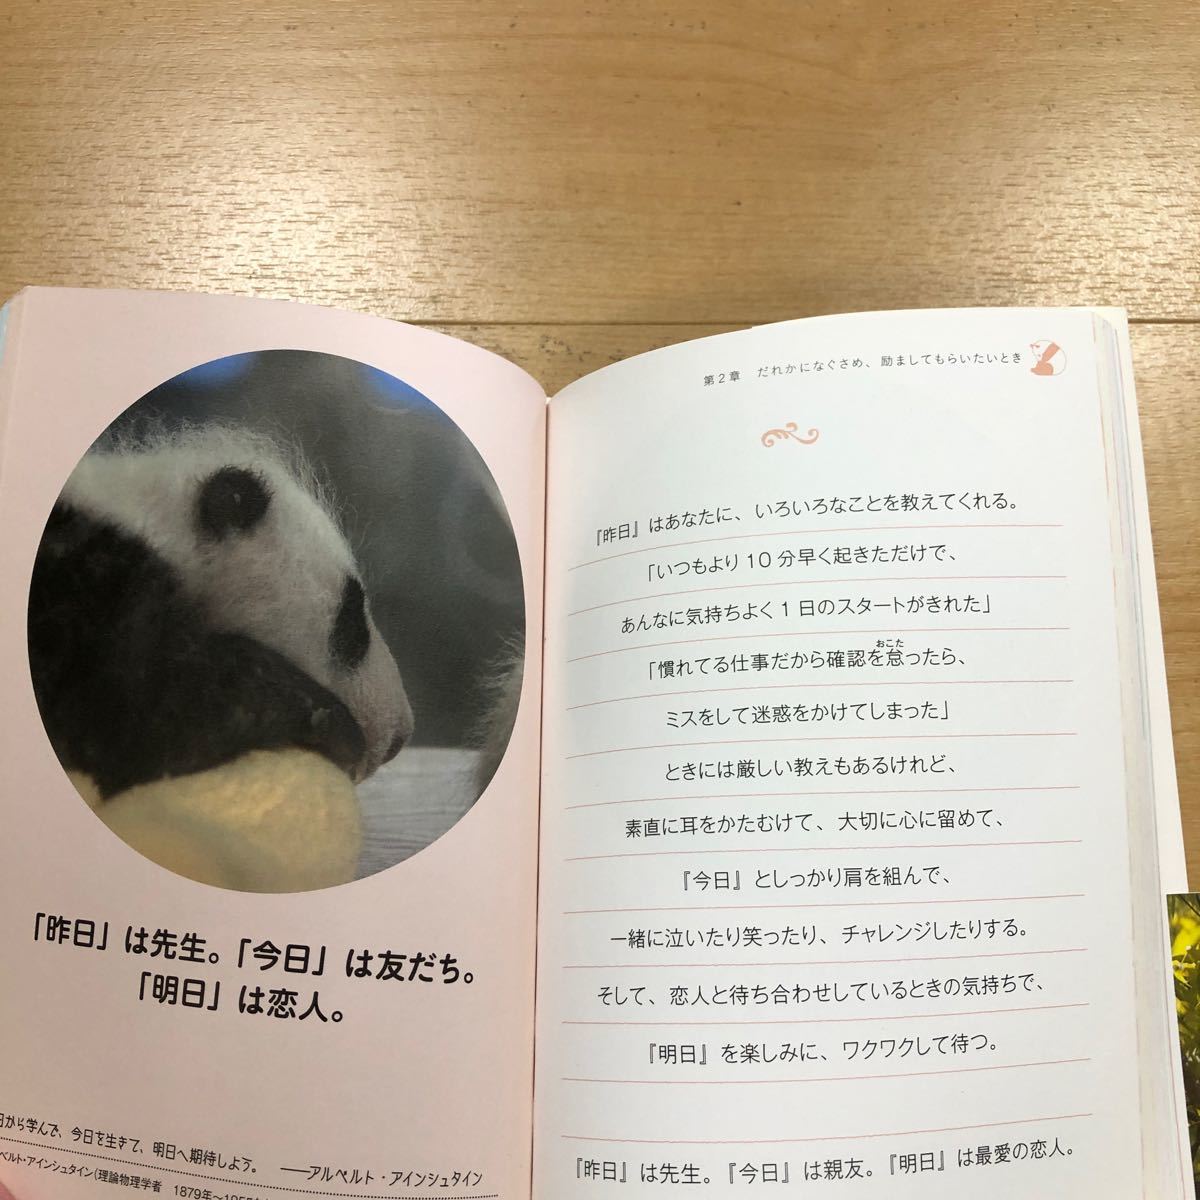 「昨日」は先生。「今日」は友だち。
「明日」は恋人。
日から学んで、今日を生きて、明日へ期待しよう。 ——アルベルト・アインシュタイン
ベルト・アインシュタイン(理論物理学者 1879年〜1955
第2章 だれかになぐさめ、励ましてもらいたいとき
『昨日』はあなたに、いろいろなことを教えてくれる。
「いつもより10分早く起きただけで、
あんなに気持ちよく1日のスタートがきれた」
おこた
「慣れてる仕事だから確認を怠ったら、
ミスをして迷惑をかけてしまった」
ときには厳しい教えもあるけれど、
素直に耳をかたむけて、大切に心に留めて、
『今日』としっかり肩を組んで、
一緒に泣いたり笑ったり、チャレンジしたりする。
そして、恋人と待ち合わせしているときの気持ちで、
『明日』を楽しみに、ワクワクして待つ。
『昨日』は先生。『今日』は親友。『明日』は最愛の恋人。